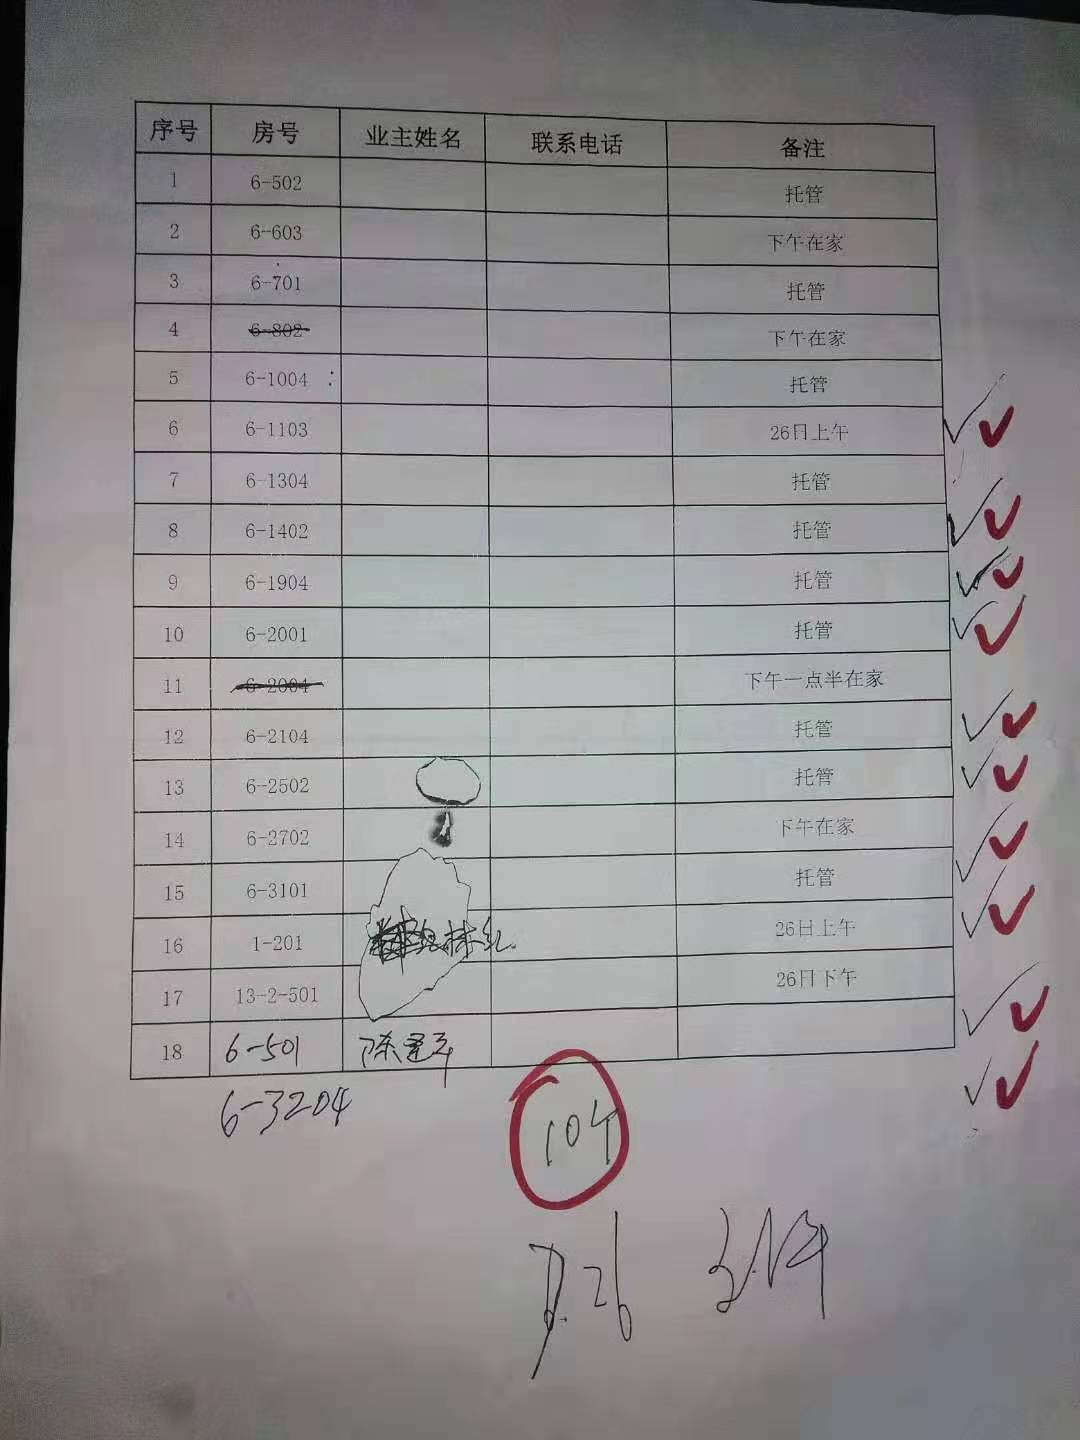 序号 房号 业主姓名 联系电话 备注
1 6-502 托管
2 6-603 下午在家
3 6-701 托管
4 6-802 下午在家
5 6-1004 托管
6 6-1103 26日上午
7 6-1304 托管
8 6-1402 托管
9 6-1904 托管
10 6-2001 托管
11 6-2004 下午一点半在家
12 6-2104 托管
13 6-2502 托管
14 6-2702 下午在家
15 6-3101 托管
16 1-201 26日上午
17 13-2-501 26日下午
18 6-501 陈
6-3204
10个
26